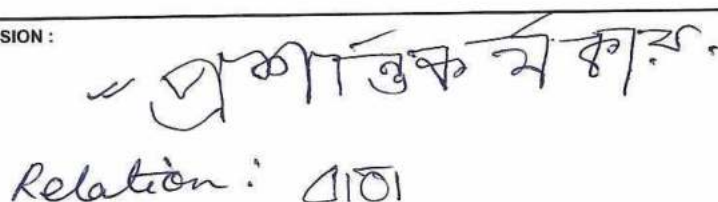 SION :
প্রশান্ত কর্মকার.
Relation : বাবা